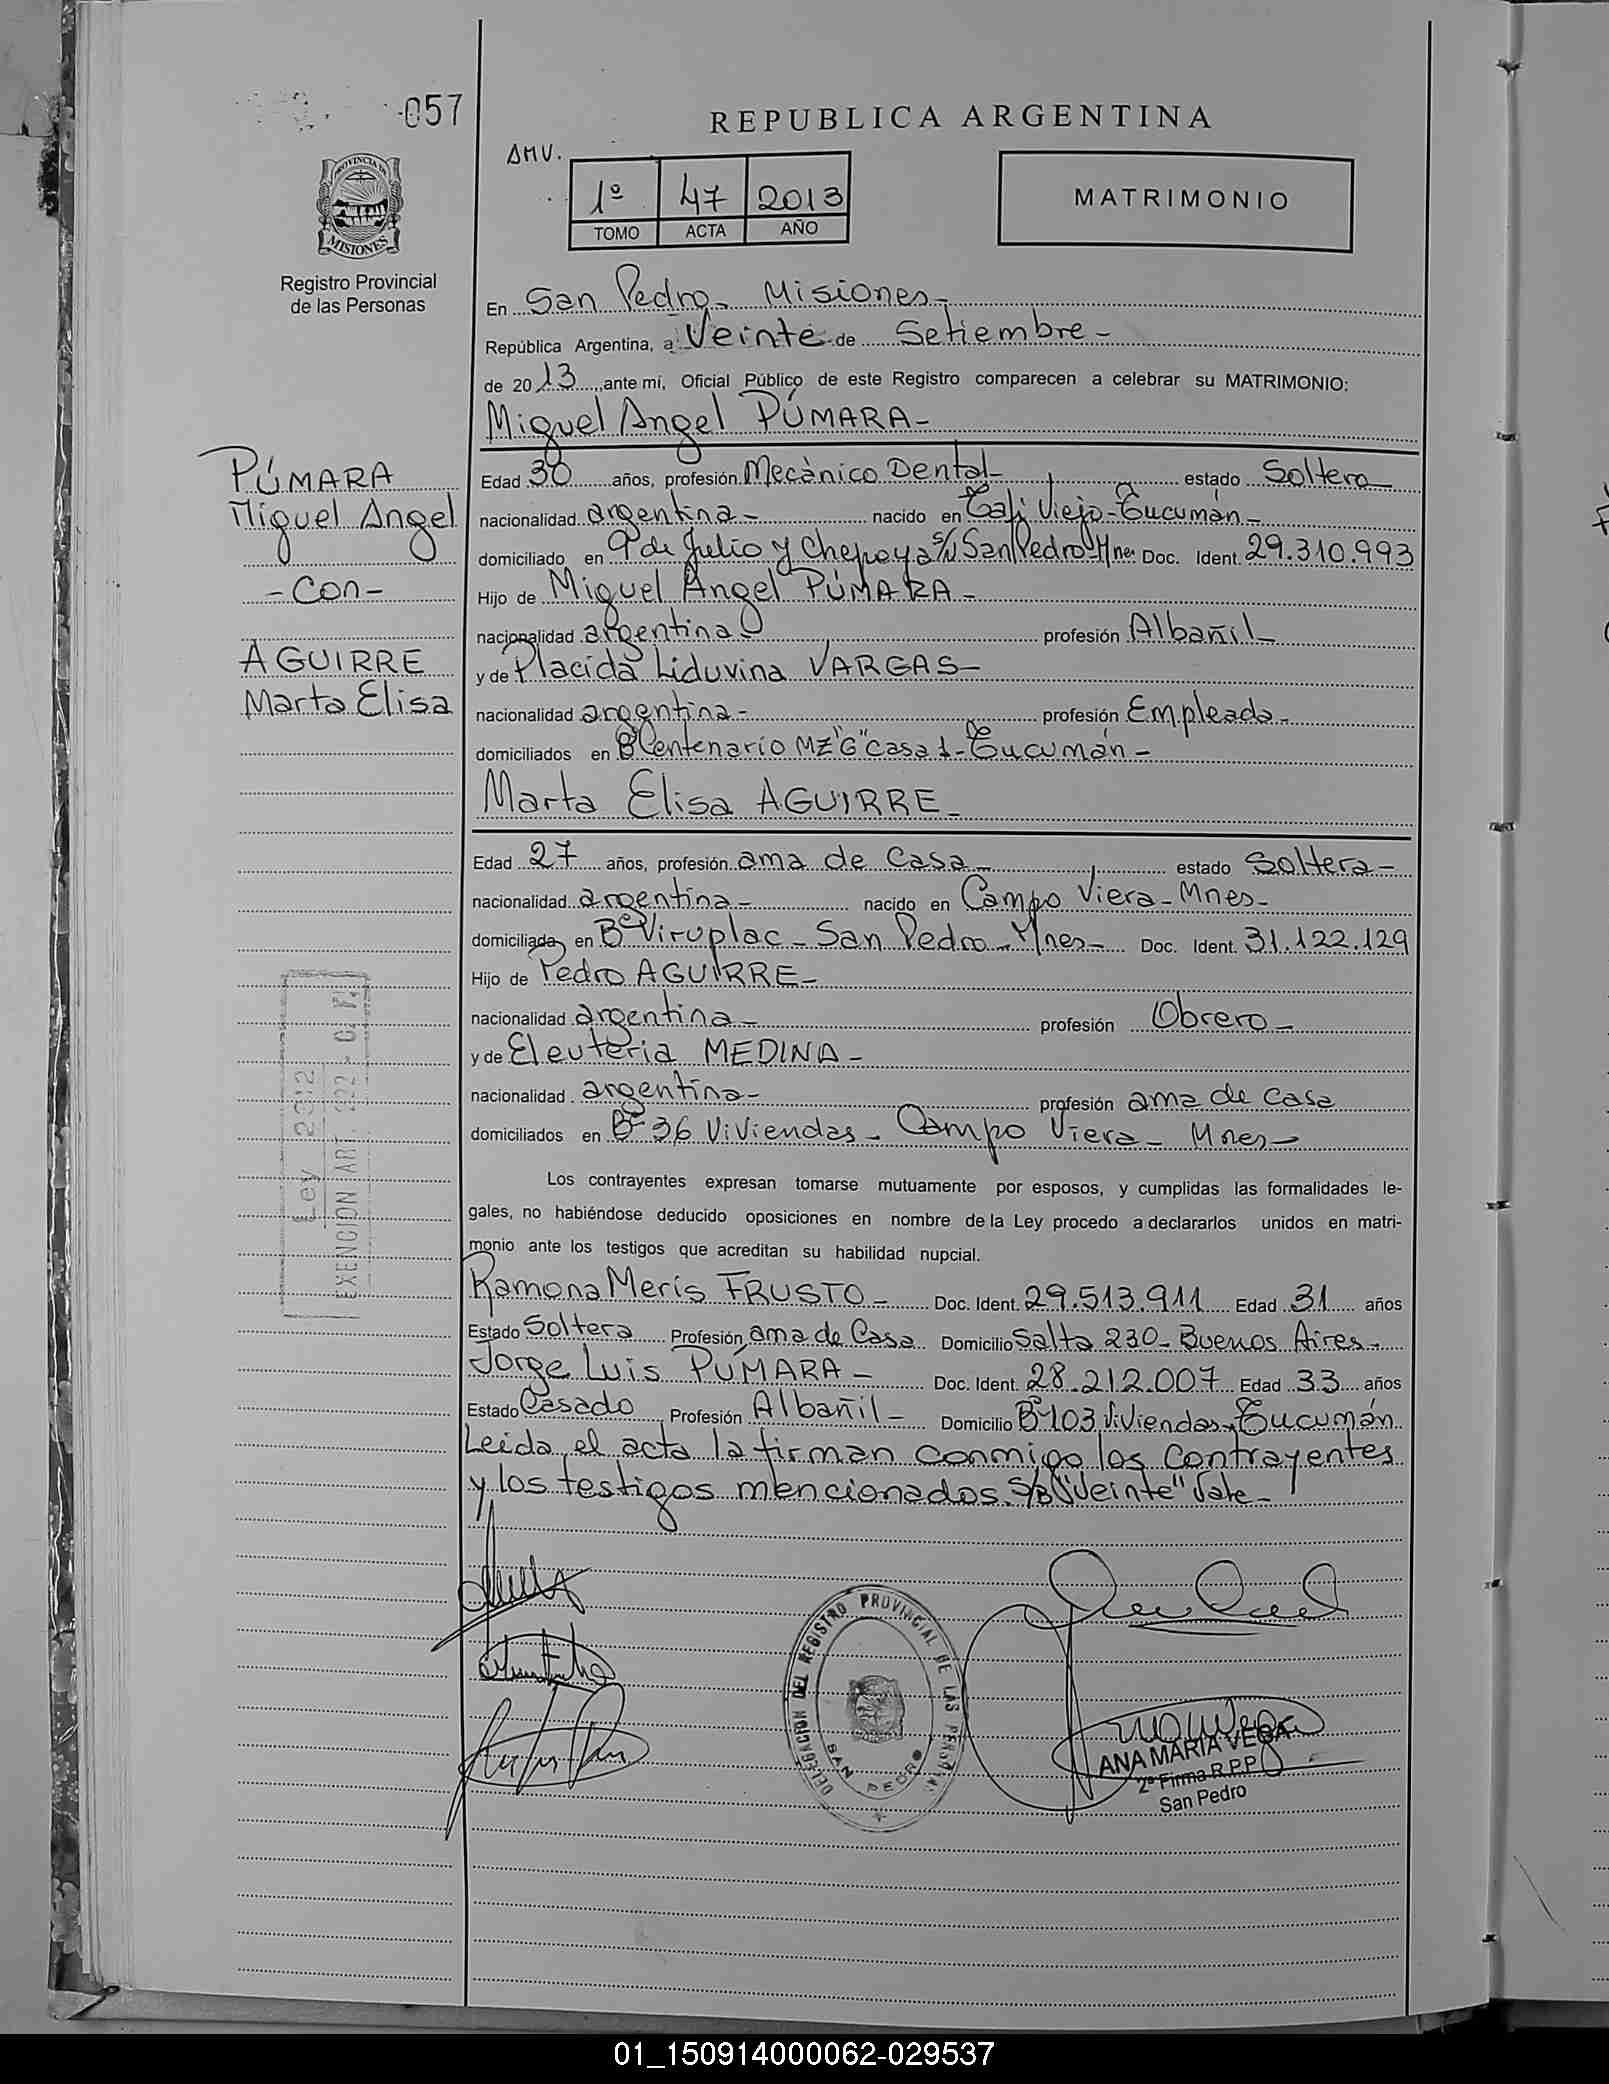 057
REPUBLICA ARGENTINA
AMV.
1º 47 2013
TOMO ACTA AÑO
MATRIMONIO
PROVINCIA DE
MISIONES
Registro Provincial
de las Personas
En San Pedro - Misiones -
República Argentina, a Veinte de Setiembre -
de 2013, ante mí, Oficial Público de este Registro comparecen a celebrar su MATRIMONIO:
Miguel Angel PÚMARA -
PÚMARA
Miguel Angel
- Con -
AGUIRRE
Marta Elisa
Edad 30 años, profesión Mecànico Dental - estado Soltero
nacionalidad argentina - nacido en Tafí Viejo - Tucumán -
domiciliado en 9 de Julio y Chepoya s/N San Pedro Mnes Doc. Ident. 29.310.993
Hijo de Miguel Angel PÚMARA -
nacionalidad argentina - profesión Albañil -
y de Placida Liduvina VARGAS -
nacionalidad argentina - profesión Empleada -
domiciliados en Bº Centenario MZ "G" Casa 1 - Tucumán -
Marta Elisa AGUIRRE -
Edad 27 años, profesión ama de Casa - estado Soltera -
nacionalidad argentina - nacido en Campo Viera - Mnes -
domiciliada en Bº Viruplac - San Pedro - Mnes - Doc. Ident. 31.122.129
Hijo de Pedro AGUIRRE -
nacionalidad argentina - profesión Obrero -
y de Eleuteria MEDINA -
nacionalidad argentina - profesión ama de Casa
domiciliados en Bº 36 Viviendas - Campo Viera - Mnes -
Ley 2312
EXENCION ART. 222
Los contrayentes expresan tomarse mutuamente por esposos, y cumplidas las formalidades le-
gales, no habiéndose deducido oposiciones en nombre de la Ley procedo a declararlos unidos en matri-
monio ante los testigos que acreditan su habilidad nupcial.
Ramona Meris FRUSTO - Doc. Ident. 29.513.911 Edad 31 años
Estado Soltera Profesión ama de Casa Domicilio Salta 230 - Buenos Aires -
Jorge Luis PÚMARA - Doc. Ident. 28.212.007 Edad 33 años
Estado Casado Profesión Albañil - Domicilio Bº 103 Viviendas - Tucumán
Leida el acta la firman conmigo los Contrayentes
y los testigos mencionados. S/B "Veinte" Vale -
DELEGACION DEL REGISTRO PROVINCIAL DE LAS PERSONAS
SAN PEDRO
ANA MARIA VEGA
2ª Firma R.P.P
San Pedro
01_150914000062-029537